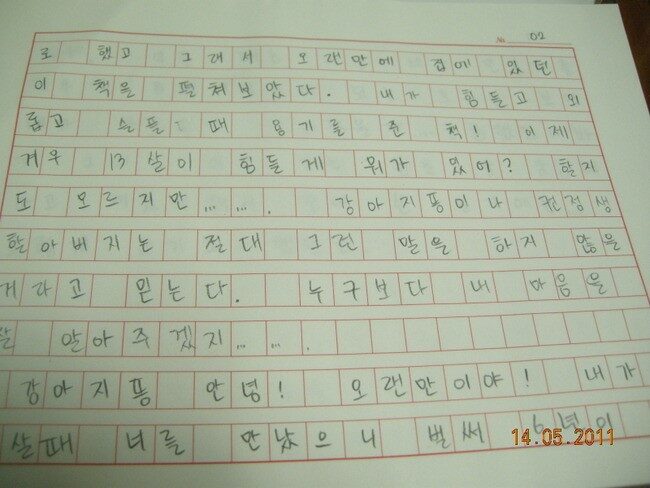 № 02
로 했고 그래서 오랜만에 집에 있던
이 책을 펼쳐보았다. 내가 힘들고 외
롭고 슬플 때 용기를 준 책! 이제
겨우 13살이 힘들게 뭐가 있어? 할지
도 모르지만……. 강아지똥이나 권정생
할아버지는 절대 그런 말을 하지 않을
게라고 믿는다. 누구보다 내 마음을
잘 알아주겠지…….
강아지똥 안녕! 오랜만이야! 내가
살때 너를 만났으니 벌써 6년이
14.05.2011